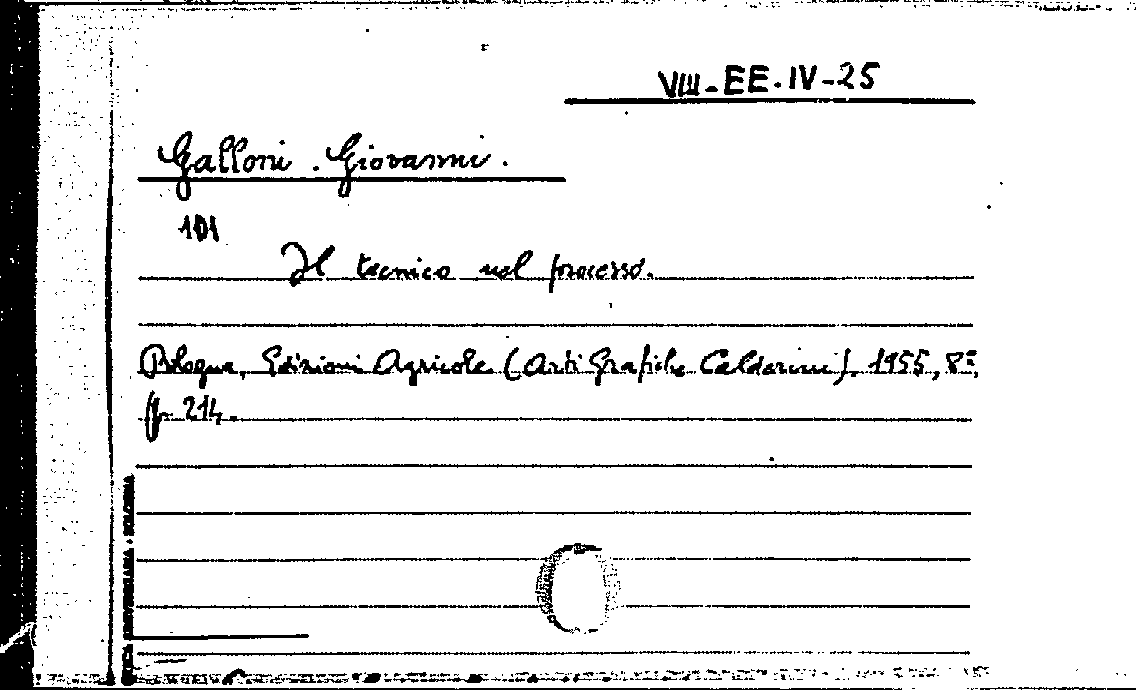 VIII-EE.IV-25
Galloni . Giovanni .
101
Il tecnico nel processo.
Bologna, Edizioni Agricole (Arti Grafiche Calderini). 1955, 8°,
p. 214.